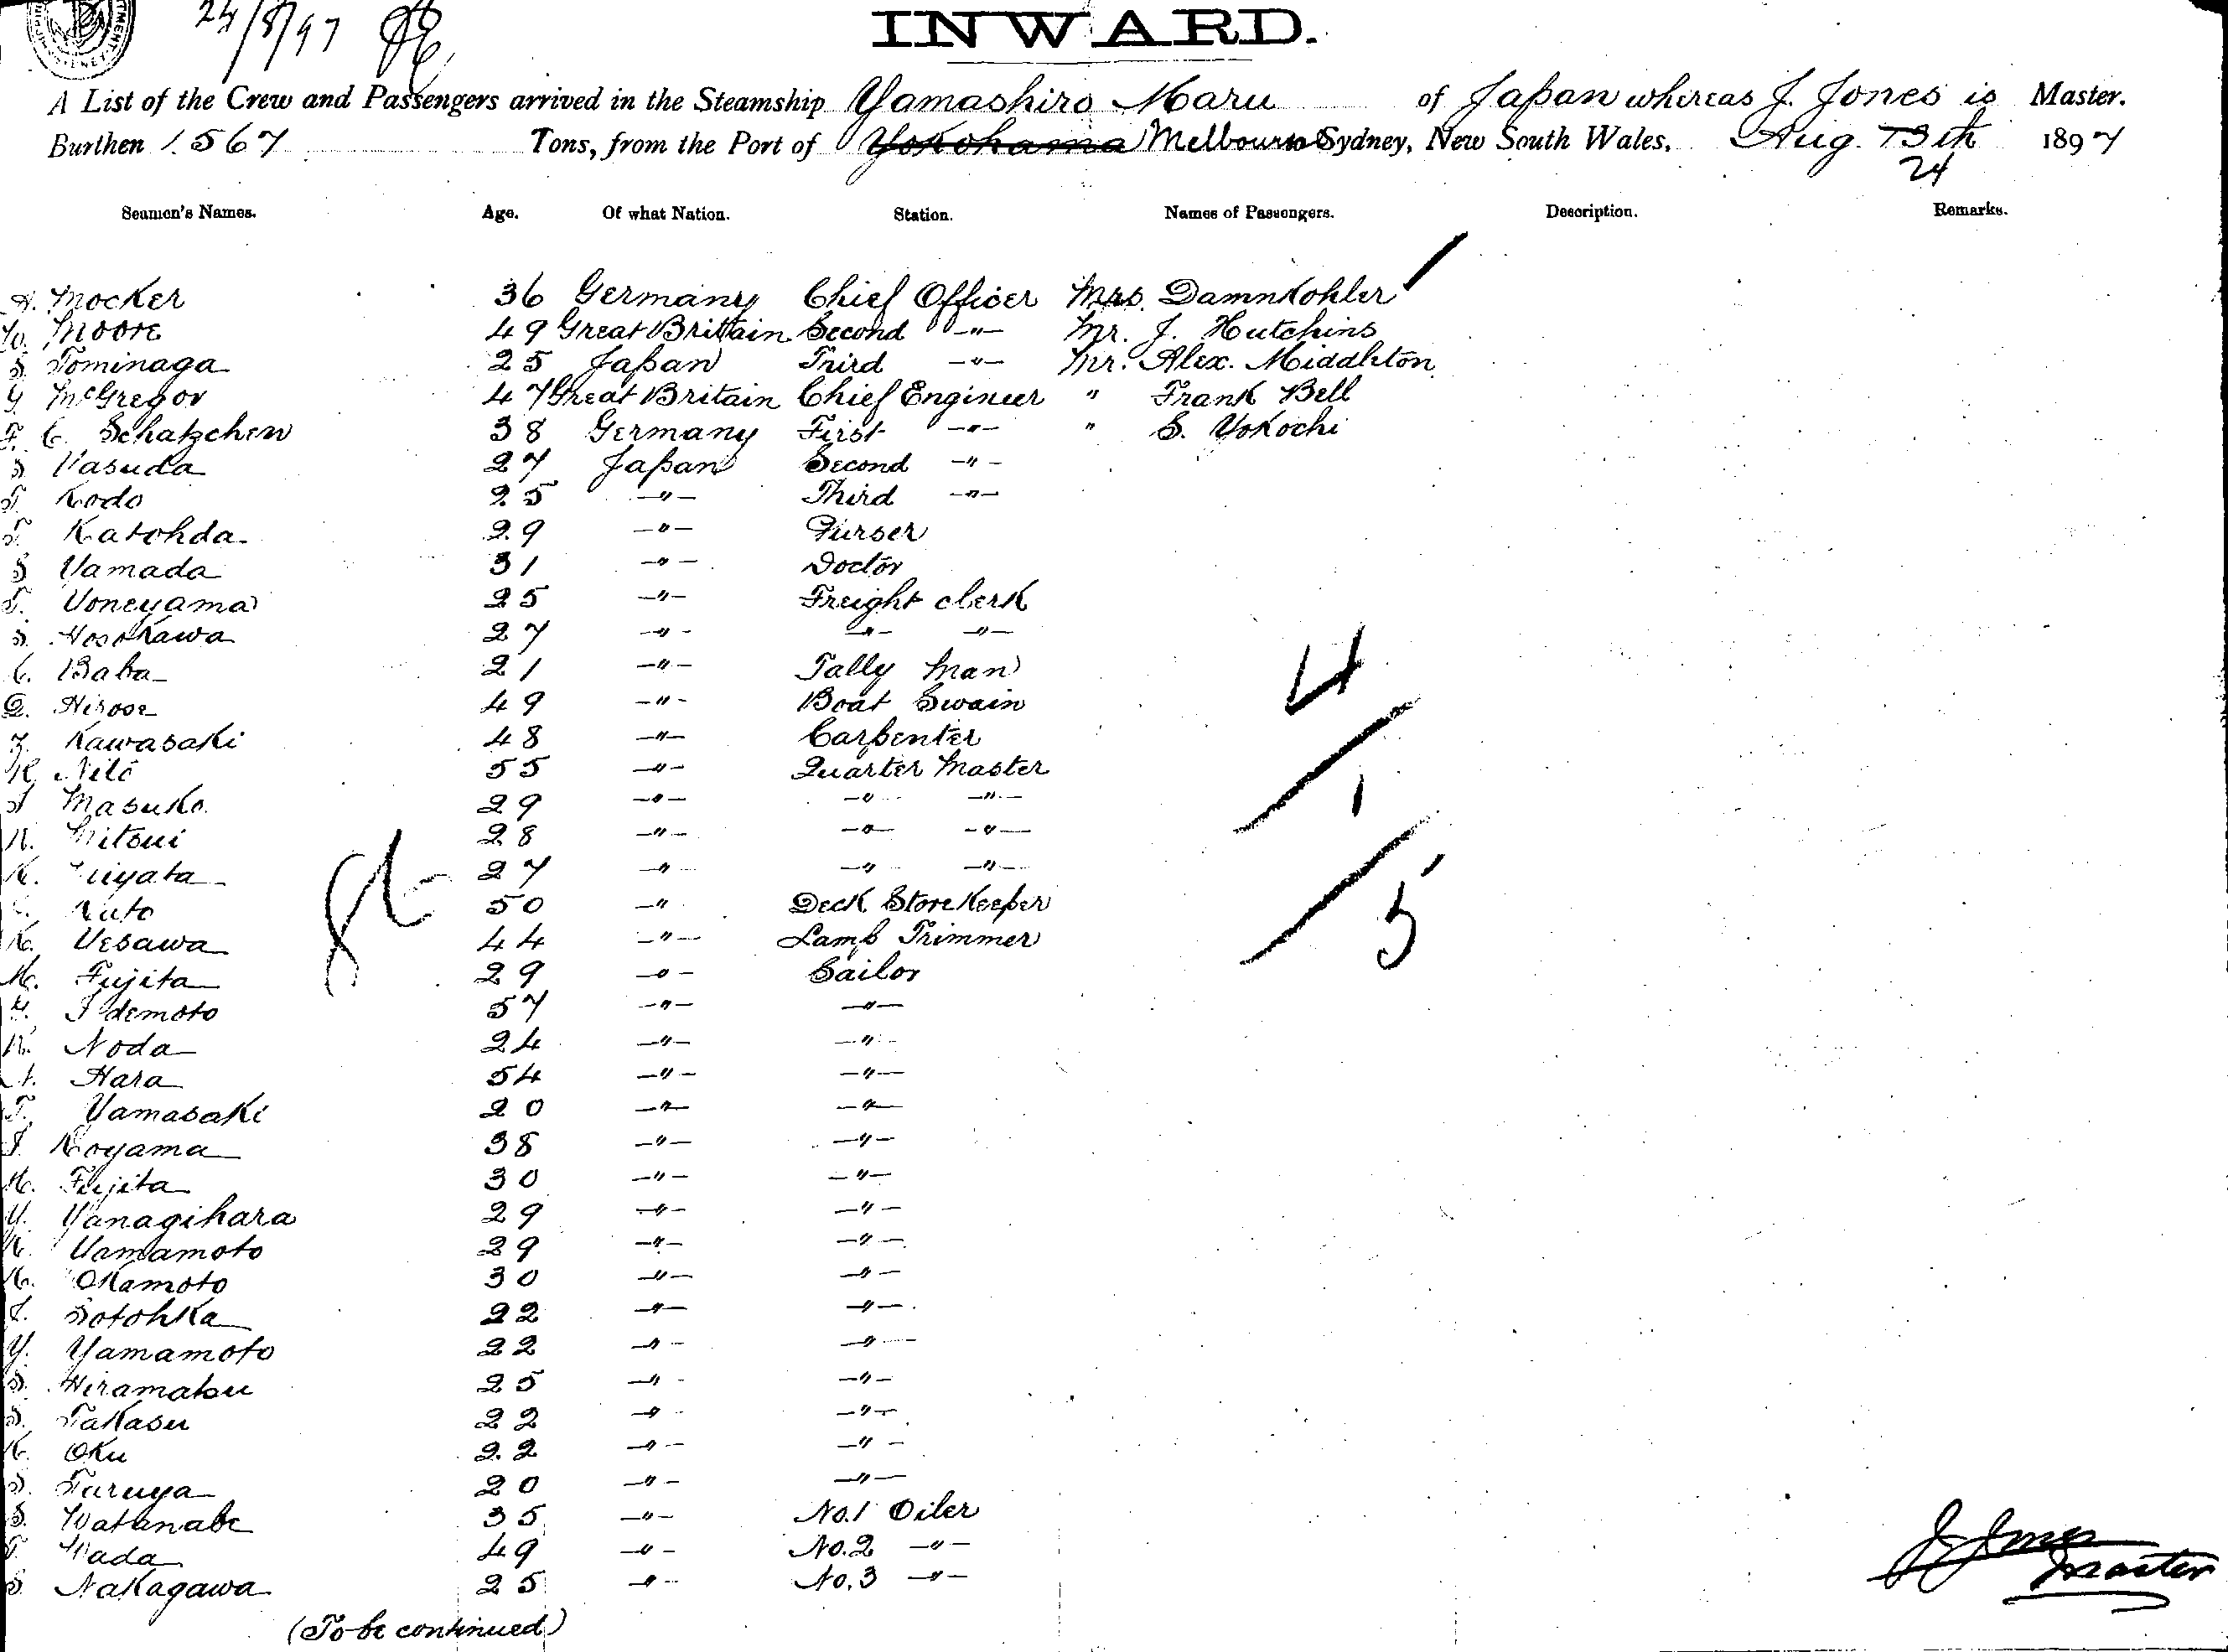 24/8/97
INWARD.
A List of the Crew and Passengers arrived in the Steamship Yamashiro Maru of Japan whereas J. Jones is Master.
Burthen 1.567 Tons, from the Port of Yokohama Melbourne Sydney, New South Wales, Aug. 13th 1897
24
Seamen's Names. Age. Of what Nation. Station. Names of Passengers. Description. Remarks.
H. Mocker 36 Germany Chief Officer Mrs. Damnkohler
W. Moore 49 Great Brittain Second -"- Mr. J. Hutchins
S. Tominaga 25 Japan Third -"- Mr. Alex. Middleton
G. McGregor 47 Great Britain Chief Engineer " Frank Bell
F. C. Schatzchen 38 Germany First -"- " S. Yokochi
S. Yasuda 27 Japan Second -"-
T. Kodo 25 -"- Third -"-
T. Katohda 29 -"- Purser
S. Yamada 31 -"- Doctor
T. Yoneyama 25 -"- Freight clerk
S. Hosokawa 27 -"- -"- -"-
C. Baba 21 -"- Tally man
G. Hirose 49 -"- Boat Swain
Z. Kawasaki 48 -"- Carpenter
K. Nito 55 -"- Quarter Master
J. Masuko 29 -"- -"- -"-
K. Mitsui 28 -"- -"- -"-
K. 27 -"- -"- -"-
Kato 50 -"- Deck Storekeeper
K. Uesawa 44 -"- Lamp Trimmer
K. Fujita 29 -"- Sailor
Y. Idemoto 57 -"- -"-
K. Noda 24 -"- -"-
Hara 54 -"- -"-
T. Yamasaki 20 -"- -"-
I. Koyama 38 -"- -"-
K. Fujita 30 -"- -"-
Y. Yanagihara 29 -"- -"-
K. Yamamoto 29 -"- -"-
K. Okamoto 30 -"- -"-
I. Sotohka 22 -"- -"-
Y. Yamamoto 22 -"- -"-
S. Hiramatsu 25 -"- -"-
S. Takasu 22 -"- -"-
K. Oku 22 -"- -"-
S. Taruya 20 -"- -"-
S. Watanabe 35 -"- No.1 Oiler
T. Wada 49 -"- No.2 -"-
S. Nakagawa 25 -"- No.3 -"-
4
1
5
J Jones
Master
(To be continued)